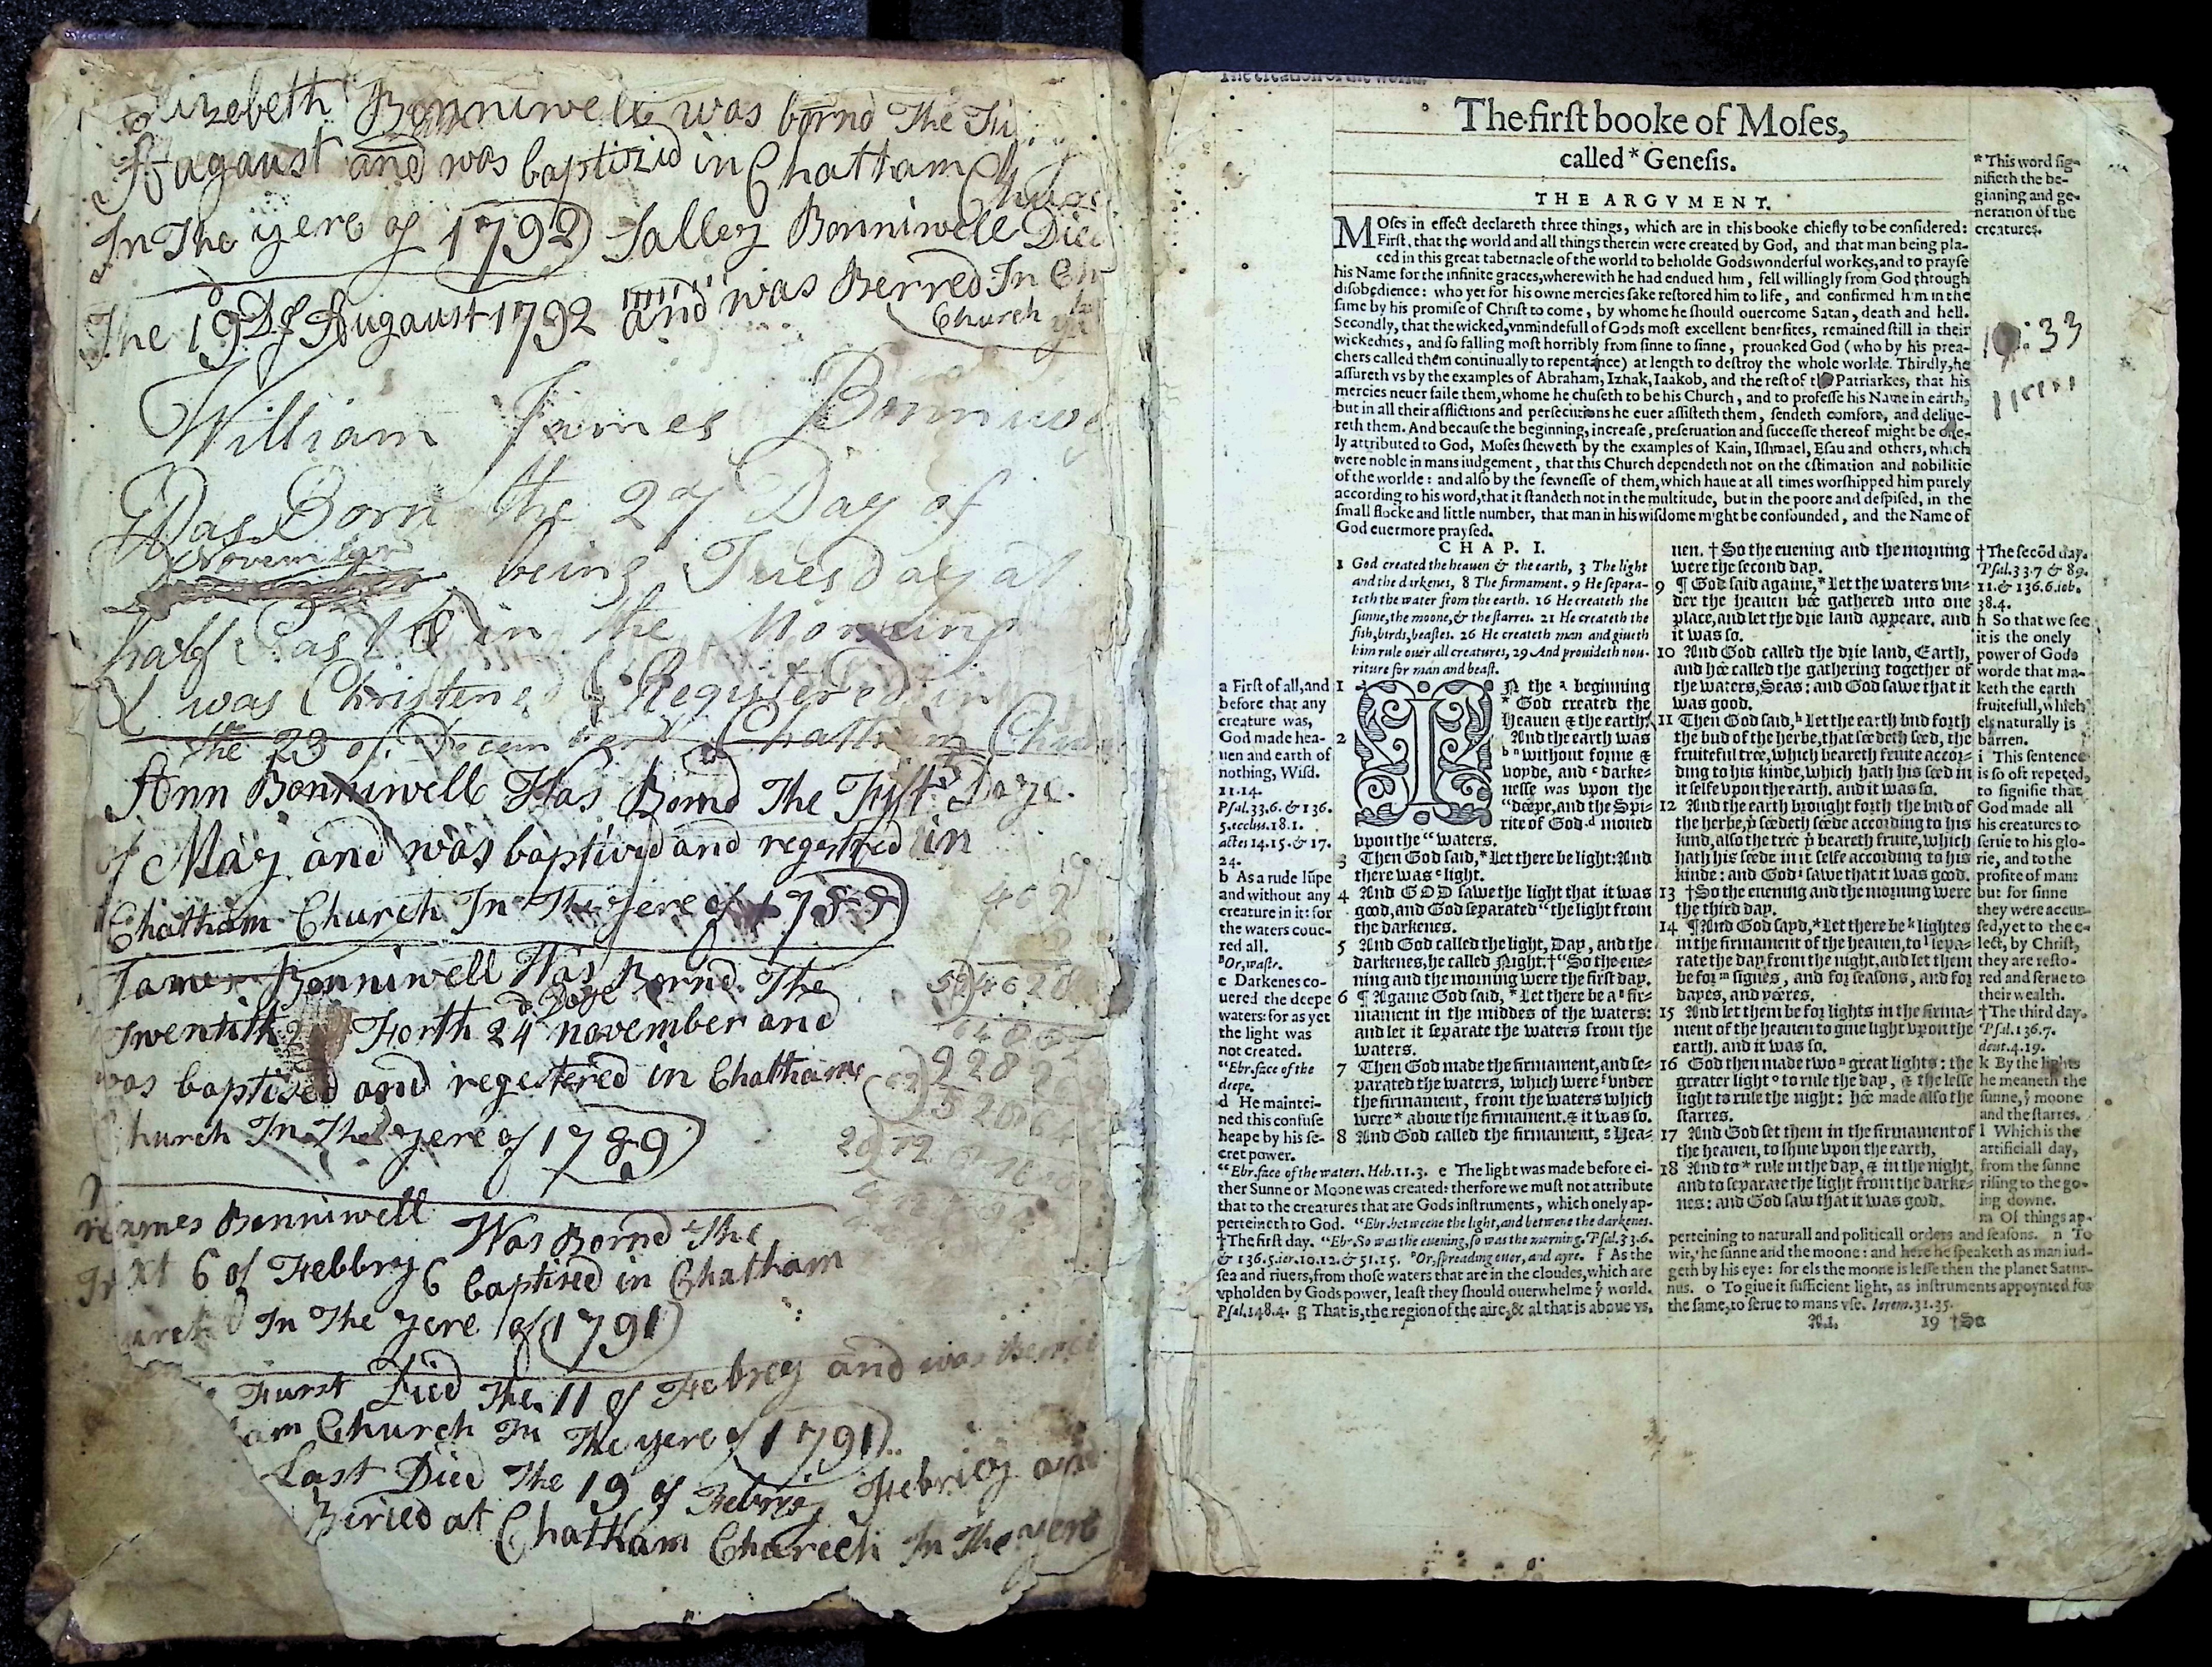 Elizebeth Bonniwell was bornd The
August and was baptizid in Chattam
In The yere of 1792 Salley Bonniwell Died
The 19 Of August 1792 and was Berred In
Church
William James
Was Born the 27 Day of
November
being Tuesday at
half Past in the Morning
& was Christened & Registered in
the 23 of December Chatham
Ann Bonniwell Was Bornd The Fust Daye
of May and was baptived and regestred in
Chatham Church In The yere of 1788
James Bonniwell Was Bornd The
Twentith Forth 24 Daye november and
was baptised and regestered in Chatham
Church In The yere of 1789
James Bonniwell Was Bornd The
6 of Febbry 6 baptised in Chatham
In The yere of 1791
Furst Died The 11 of Febrey and was
am Church In The yere of 1791
Last Died The 19 of Febrey Febriey and
Biried at Chatham Charech In The yere
The first booke of Moses,
called * Genesis.
* This word sig-
nifieth the be-
ginning and ge-
neration of the
creatures.
THE ARGVMENT.
MOses in effect declareth three things, which are in this booke chiefly to be considered:
First, that the world and all things therein were created by God, and that man being pla-
ced in this great tabernacle of the world to beholde Gods wonderful workes, and to prayse
his Name for the infinite graces, wherewith he had endued him, fell willingly from God through
disobedience: who yet for his owne mercies sake restored him to life, and confirmed him in the
same by his promise of Christ to come, by whome he should ouercome Satan, death and hell.
Secondly, that the wicked, vnmindefull of Gods most excellent benefites, remained still in their
wickednes, and so falling most horribly from sinne to sinne, prouoked God (who by his prea-
chers called them continually to repentance) at length to destroy the whole worlde. Thirdly, he
assureth vs by the examples of Abraham, Izhak, Iaakob, and the rest of the Patriarkes, that his
mercies neuer faile them, whome he chuseth to be his Church, and to professe his Name in earth,
but in all their afflictions and persecutions he euer assisteth them, sendeth comfort, and deliue-
reth them. And because the beginning, increase, preseruation and successe thereof might be one-
ly attributed to God, Moses sheweth by the examples of Kain, Ishmael, Esau and others, which
were noble in mans iudgement, that this Church dependeth not on the estimation and nobilitie
of the worlde: and also by the fewnesse of them, which haue at all times worshipped him purely
according to his word, that it standeth not in the multitude, but in the poore and despised, in the
small flocke and little number, that man in his wisdome might be confounded, and the Name of
God euermore praysed.
CHAP. I.
1 God created the heauen & the earth, 3 The light
and the darkenes, 8 The firmament. 9 He separa-
teth the water from the earth. 16 He createth the
sunne, the moone, & the starres. 21 He createth the
fish, birds, beastes. 26 He createth man and giueth
him rule ouer all creatures, 29 And prouideth nou-
riture for man and beast.
1 IN the a beginning
* God created the
Heauen & the earth.
2 And the earth was
b " without forme &
voyde, and c darke-
nesse was vpon the
" deepe, and the Spi-
rite of God d moued
vpon the " waters.
3 Then God said, * Let there be light: And
there was e light.
4 And GOD sawe the light that it was
good, and God separated " the light from
the darkenes.
5 And God called the light, Day, and the
darkenes, he called Night. † " So the eue-
ning and the morning were the first day.
6 ¶ Againe God said, * Let there be a fir-
mament in the middes of the waters:
and let it separate the waters from the
waters.
7 Then God made the firmament, and se-
parated the waters, which were f vnder
the firmament, from the waters which
were * aboue the firmament. & it was so.
8 And God called the firmament, g Hea-
a First of all, and
before that any
creature was,
God made hea-
uen and earth of
nothing, Wisd.
11.14.
Psal.33.6. & 136.
5. ecclus.18.1.
actes 14.15. & 17.
24.
b As a rude lũpe
and without any
creature in it: for
the waters coue-
red all.
"Or, waste.
c Darkenes co-
uered the deepe
waters: for as yet
the light was
not created.
"Ebr. face of the
deepe.
d He maintei-
ned this confuse
heape by his se-
cret power.
"Ebr. face of the waters. Heb.11.3. e The light was made before ei-
ther Sunne or Moone was created: therfore we must not attribute
that to the creatures that are Gods instruments, which onely ap-
perteineth to God. "Ebr. betweene the light, and betwene the darkenes.
† The first day. "Ebr. So was the euening, so was the morning. Psal.33.6.
& 136.5. ier.10.12. & 51.15. "Or, spreading ouer, and ayre. f As the
sea and riuers, from those waters that are in the cloudes, which are
vpholden by Gods power, least they should ouerwhelme ye world.
Psal.148.4. g That is, the region of the aire, & al that is aboue vs.
uen. † So the euening and the morning
were the second day.
9 ¶ God said againe, * Let the waters vn-
der the heauen bee gathered into one
place, and let the drie land appeare. and
it was so.
10 And God called the drie land, Earth,
and hee called the gathering together of
the waters, Seas: and God sawe that it
was good.
11 Then God said, h Let the earth bud forth
the bud of the herbe, that seedeth seed, the
fruitefull tree, which beareth fruite accor-
ding to his kinde, which hath his seed in
it selfe vpon the earth. and it was so.
12 And the earth brought forth the bud of
the herbe, yt seedeth seede according to his
kind, also the tree yt beareth fruite, which
hath his seede in it selfe according to his
kinde: and God i sawe that it was good.
13 † So the euening and the morning were
the third day.
14 ¶ And God sayd, * Let there be k lightes
in the firmament of the heauen, to l sepa-
rate the day from the night, and let them
be for m signes, and for seasons, and for
dayes, and yeeres.
15 And let them be for lights in the firma-
ment of the heauen to giue light vpon the
earth. and it was so.
16 God then made two n great lights: the
greater light o to rule the day, & the lesse
light to rule the night: hee made also the
starres.
17 And God set them in the firmament of
the heauen, to shine vpon the earth,
18 And to * rule in the day, & in the night,
and to separate the light from the darke-
nes: and God saw that it was good.
† The secõd day.
Psal.33.7 & 89.
11. & 136.6. iob.
38.4.
h So that we see
it is the onely
power of Gods
worde that ma-
keth the earth
fruitefull, which
els naturally is
barren.
i This sentence
is so oft repeted,
to signifie that
God made all
his creatures to
serue to his glo-
rie, and to the
profite of man:
but for sinne
they were accur-
sed, yet to the e-
lect, by Christ,
they are resto-
red and serue to
their wealth.
† The third day.
Psal.136.7.
deut.4.19.
k By the lights
he meaneth the
sunne, ye moone
and the starres.
l Which is the
artificiall day,
from the sunne
rising to the go-
ing downe.
m Of things ap-
perteining to naturall and politicall orders and seasons. n To
wit, the sunne and the moone: and here he speaketh as man iud-
geth by his eye: for els the moone is lesse then the planet Satur-
nus. o To giue it sufficient light, as instruments appoynted for
the same, to serue to mans vse. Ierem.31.35.
A.i. 19 † So